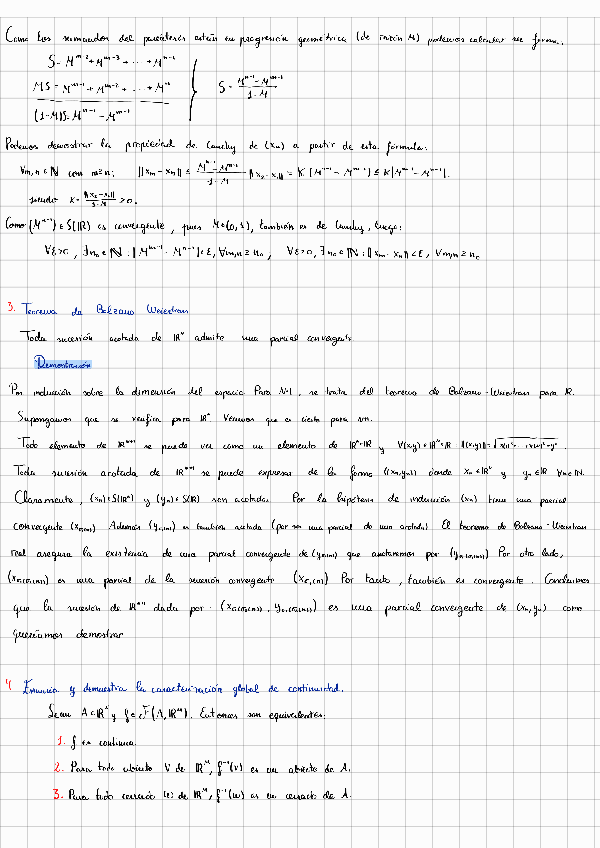 Como los sumandos del paréntesis están en progresión geométrica (de razón M) podemos calcular su forma.
S = M^{m-2} + M^{m-3} + ... + M^{n-1}
MS = M^{m-1} + M^{m-2} + ... + M^{n}
(1-M)S = M^{n-1} - M^{m-1}
S = \frac{M^{n-1} - M^{m-1}}{1-M}
Podemos demostrar la propiedad de Cauchy de (x_n) a partir de esta fórmula:
∀m,n ∈ ℕ con m≥n: ||x_m - x_n|| ≤ \frac{M^{n-1} - M^{m-1}}{1-M} ||x_2 - x_1|| = K [M^{n-1} - M^{m-1}] ≤ K|M^{n-1} - M^{m-1}|.
siendo K = \frac{||x_2 - x_1||}{1-M} > 0.
Como {M^{n-1}} ∈ S(ℝ) es convergente, pues M∈(0,1), también es de Cauchy, luego:
∀ε>0, ∃n_0 ∈ ℕ : |M^{m-1} - M^{n-1}| < ε, ∀m,n ≥ n_0, ∀ε>0, ∃n_0 ∈ ℕ : ||x_m - x_n|| < ε, ∀m,n ≥ n_0
3. Teorema de Bolzano Weierstrass
Toda sucesión acotada de ℝ^N admite una parcial convergente
Demostración
Por inducción sobre la dimensión del espacio Para N=1, se trata del teorema de Bolzano-Weierstrass para ℝ.
Supongamos que se verifica para ℝ^N. Veamos que es cierto para
Todo elemento de ℝ^{N+1} se puede ver como un elemento de ℝ^N×ℝ y ∀(x,y)∈ℝ^N×ℝ
Toda sucesión acotada de ℝ^{N+1} se puede expresar de la forma {(x_n,y_n)} donde x_n∈ℝ^N y y_n∈ℝ ∀n∈ℕ.
Claramente, (x_n)∈S(ℝ^N) y (y_n)∈S(ℝ) son acotadas. Por la hipótesis de inducción (x_n) tiene una parcial
convergente (x_{σ(n)}) Además (y_{σ(n)}) es también acotada (por ser una parcial de una acotada) El teorema de Bolzano-Weierstrass
real asegura la existencia de una parcial convergente de (y_{σ(n)}) que anotaremos por Por otro lado,
es una parcial de la sucesión convergente (x_{σ(n)}) Por tanto, también es convergente. Concluimos
que la sucesión de ℝ^{N+1} dada por es una parcial convergente de (x_n,y_n) como
queríamos demostrar
4 Enuncia y demuestra la caracterización global de continuidad.
Sean A⊂ℝ^N y f∈F(A,ℝ^M). Entonces son equivalentes:
1. f es continua.
2. Para todo abierto V de ℝ^M, f^{-1}(V) es un abierto de A.
3. Para todo cerrado W de ℝ^M, f^{-1}(W) es un cerrado de A.